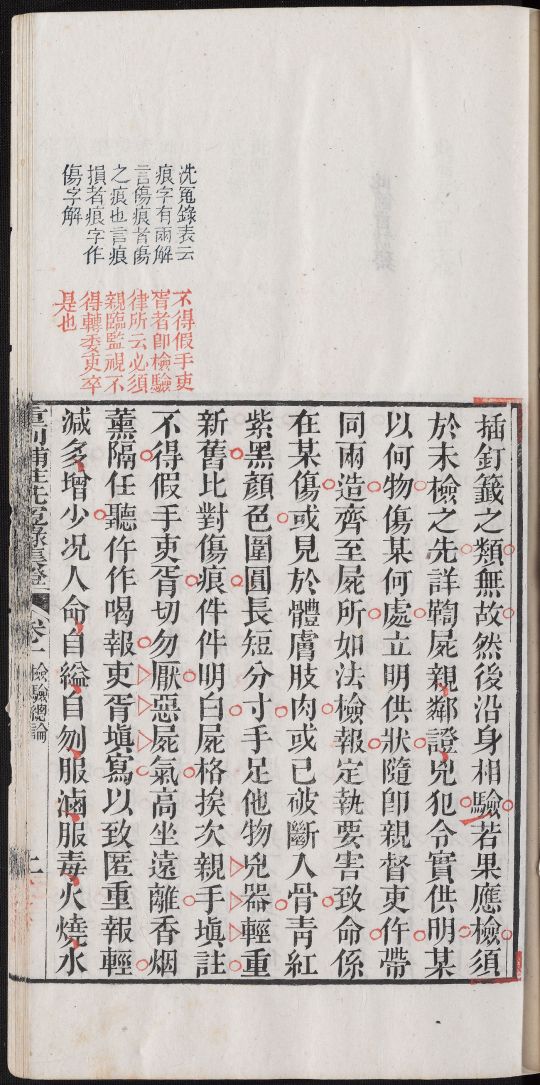 洗冤錄表云
痕字有兩解
言傷痕者傷
之痕也言痕
損者痕字作
傷字解
不得假手吏
胥者卽檢驗
律所云必須
親臨監視不
得轉委吏卒
是也
插釘籖之類無故然後沿身相驗若果應檢須
於未檢之先詳鞫屍親鄰證兇犯令實供明某
以何物傷某何處立明供狀隨卽親督吏仵帶
同兩造齊至屍所如法檢報定執要害致命係
在某傷或見於體膚肢肉或已破斷入骨靑紅
紫黑顏色圍圓長短分寸手足他物兇器輕重
新舊比對傷痕件件明白屍格挨次親手塡註
不得假手吏胥切勿厭惡屍氣高坐遠離香烟
薰隔任聽仵作喝報吏胥塡寫以致匿重報輕
減多增少况人命自縊自刎服滷服毒火燒水
重刊補註洗冤錄集證 卷一 檢驗總論 上